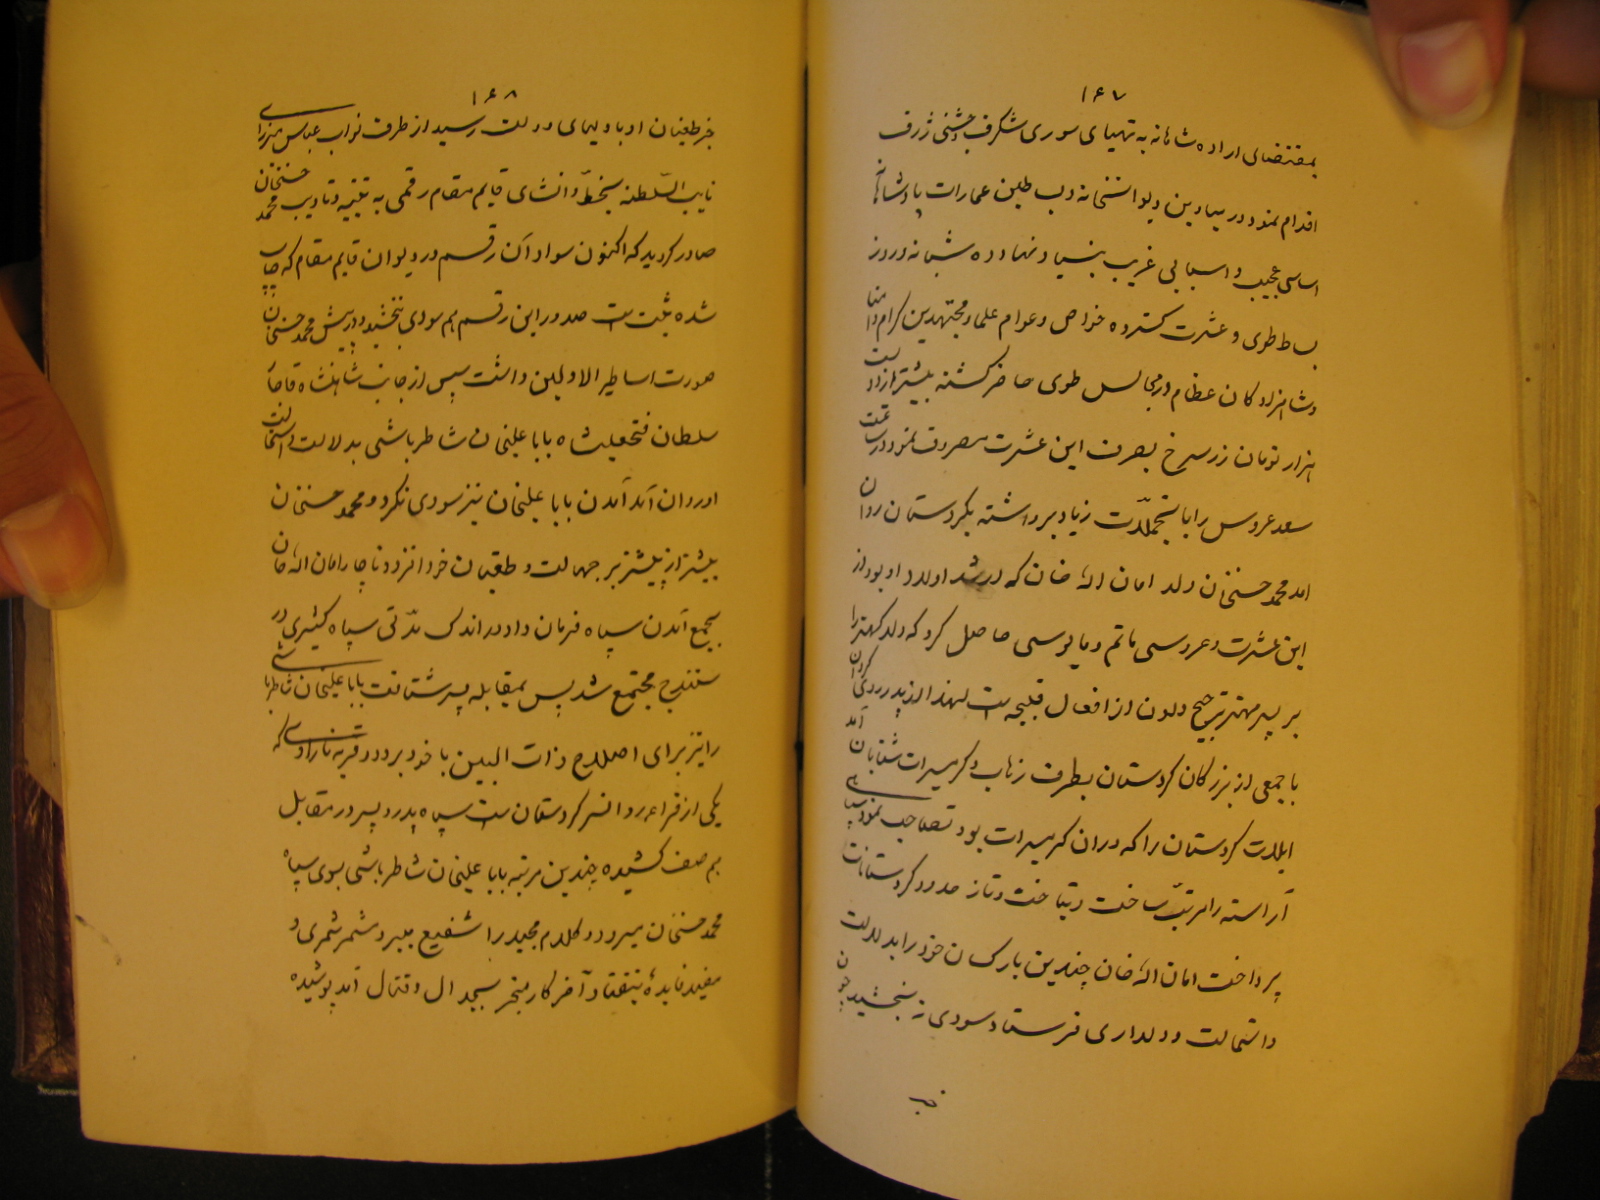 ۱۶۷
بمقتضای اراده شاهانه به تهیهای سوری شگرف و جشنی ژرف
اقدام نمود در میادین دیوانخانه و بساطین عمارات پادشاهانه
اساسی عجیب و اسبابی غریب بنیاد نهاد ده شبانه و روز
بساط طوی و عشرت گسترده خواص و عوام علما و مجتهدین کرام و امنا
و شاهزادکان عظام در مجالس طوی حاضر کشته بیشتر از دویست
هزار تومان زر سرخ بصرف این عشرت مصروف نمود در ساعت
سعد عروس را با تجملات زیاد برداشته بکردستان روان
امد محمد حسنخان ولد امان اله خان که ارشد اولاد او بود از
این عشرت و عروسی ماتم و مایوسی حاصل کرد که ولد کهتر را
بر پسر مهتر ترجیح دادن از افعال قبیحه است لهذا از پدر روی کردان
با جمعی از بزرکان کردستان بطرف زهاب و کرمسیرات شتابان آمد
ایلات کردستان را که در ان کرمسیرات بود تصاحب نمود سپاهی
آراسته را مرتب ساخت و بتاخت و تاز حدود کردستانات
پرداخت امان اله خان چندین بار کسان خود را بدلالت
و استمالت و دلداری فرستاد سودی نه بخشید چون
خبر
۱۶۸
خبر طغیان او باولیای دولت رسید از طرف نواب عباس میرزای
نایب السلطنه بخط و انشای قایم مقام رقمی به تنبیه و تادیب محمد حسنخان
صادر کردید که اکنون سواد آن رقم در دیوان قایم مقام که چاپ
شده ثبت است صدور این رقم هم سودی نبخشید و در پیش محمد حسنخان
صورت اساطیر الاولین داشت سپس از جانب شاهنشاه قاجار
سلطان فتحعلیشاه بابا علیخان شاطر باشی بدلالت و استمالت
او روان آمد آمدن بابا علیخان نیز سودی نکرد و محمد حسنخان
بیشتر از پیشتر بر جهالت و طغیان خود افزود ناچار امان اله خان
بجمع آمدن سپاه فرمان داد در اندک مدتی سپاه کثیری در
سنندج مجتمع شد پس بمقابله پسر شتافت بابا علیخان شاطر باشی
را نیز برای اصلاح ذات البین با خود برد در قریه ناراوی که
یکی از قراء رودانسر کردستان است سپاه پدر و پسر در مقابل
هم صف کشیده چندین مرتبه بابا علیخان شاطر باشی بسوی سپاه
محمد حسنخان میرود و کلام مجید را شفیع میبرد مثمر ثمری و
مفید فایدهٔ نیفتاد آخر کار منجر بجدال و قتال آمد پوشیده